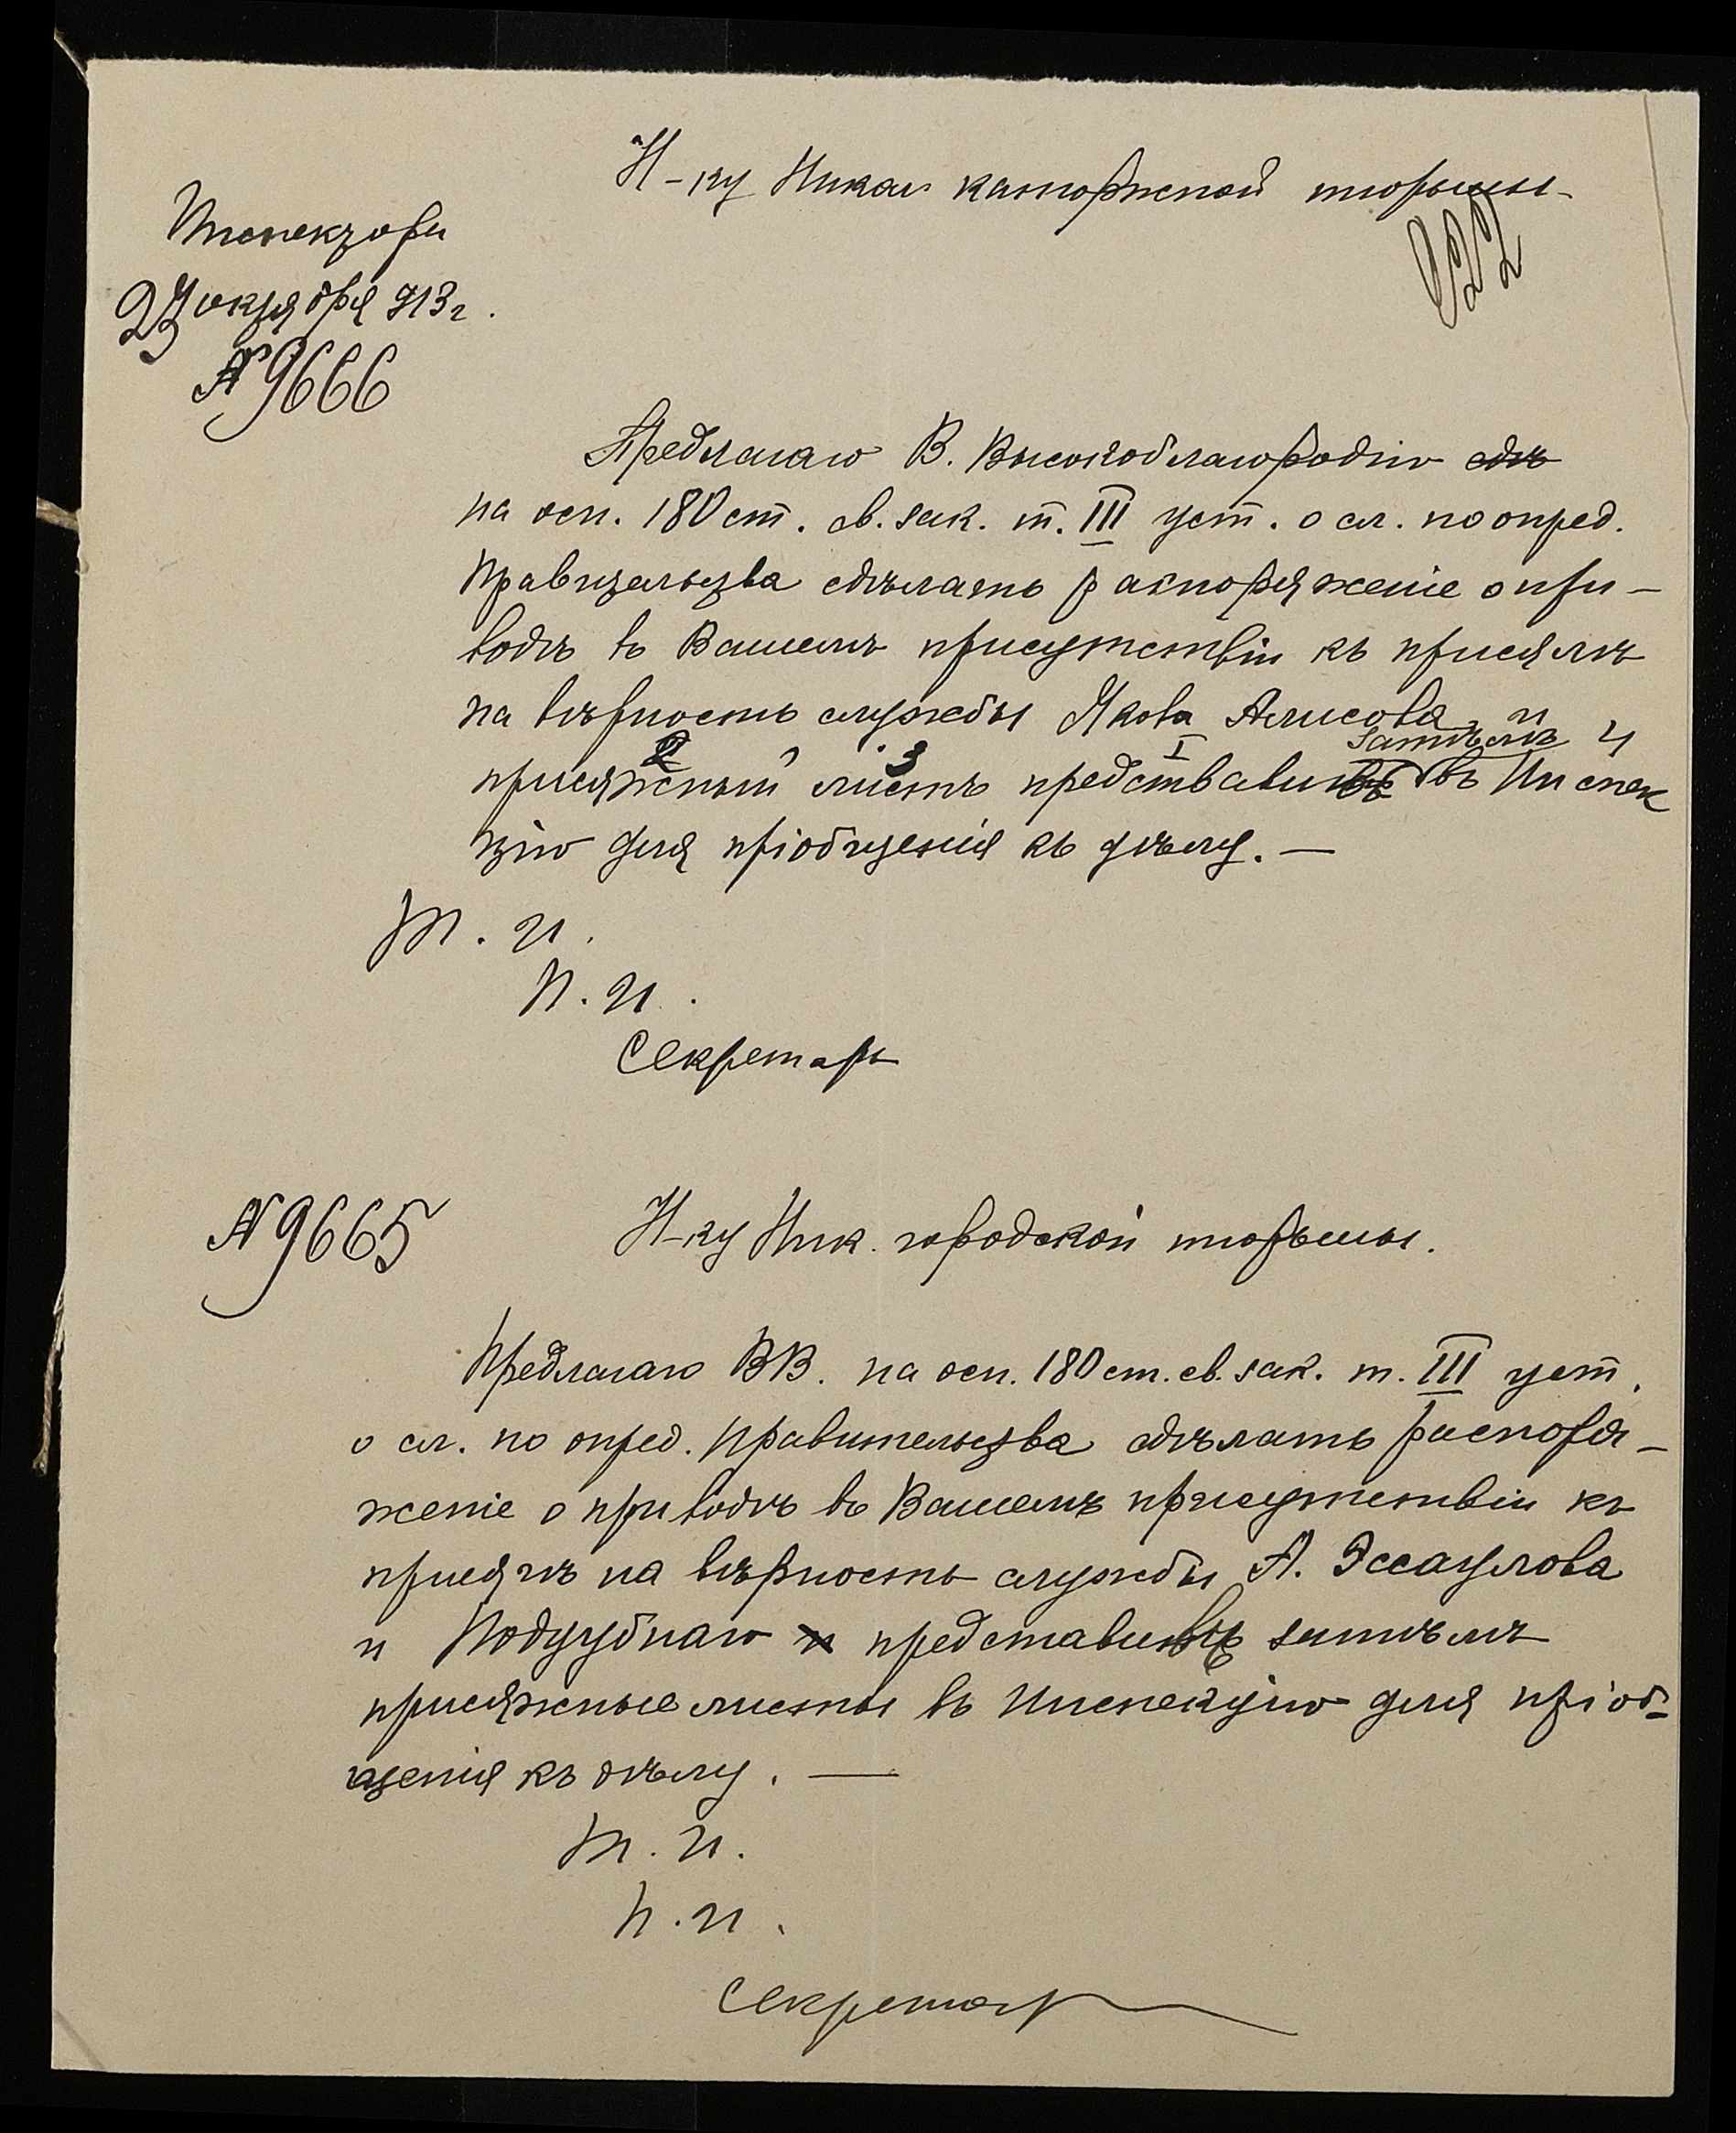 Н-ку Никол каторжной тюрьмы
122
Инспектора
23 октября 913 г.
№ 9666
Предлагаю В. Высокоблагородію сдѣ
на осн. 180 ст. св. зак. т. III уст. о сл. по опред.
Правительства сдѣлать распоряженіе о при-
водѣ въ Вашемъ присутствіи къ присягѣ
на вѣрность службы Якова Алисова, и
затѣмъ 4
2 3 I
присяжный листъ представить въ Инспек
цію для пріобщенія къ дѣлу. —
Т. И.
П. И.
Секретарь
№ 9665
Н-ку Ник. городской тюрьмы.
Предлагаю ВВ. на осн. 180 ст. св. зак. т. III уст.
о сл. по опред. Правительства сдѣлать распоря-
женіе о приводѣ въ Вашемъ присутствіи къ
присягѣ на вѣрность службы А. Эссаулова
и Поддубнаго и представить затѣмъ
присяжные листы въ Инспекцію для пріоб-
щенія къ дѣлу. —
Т. И.
П. И.
Секретарь